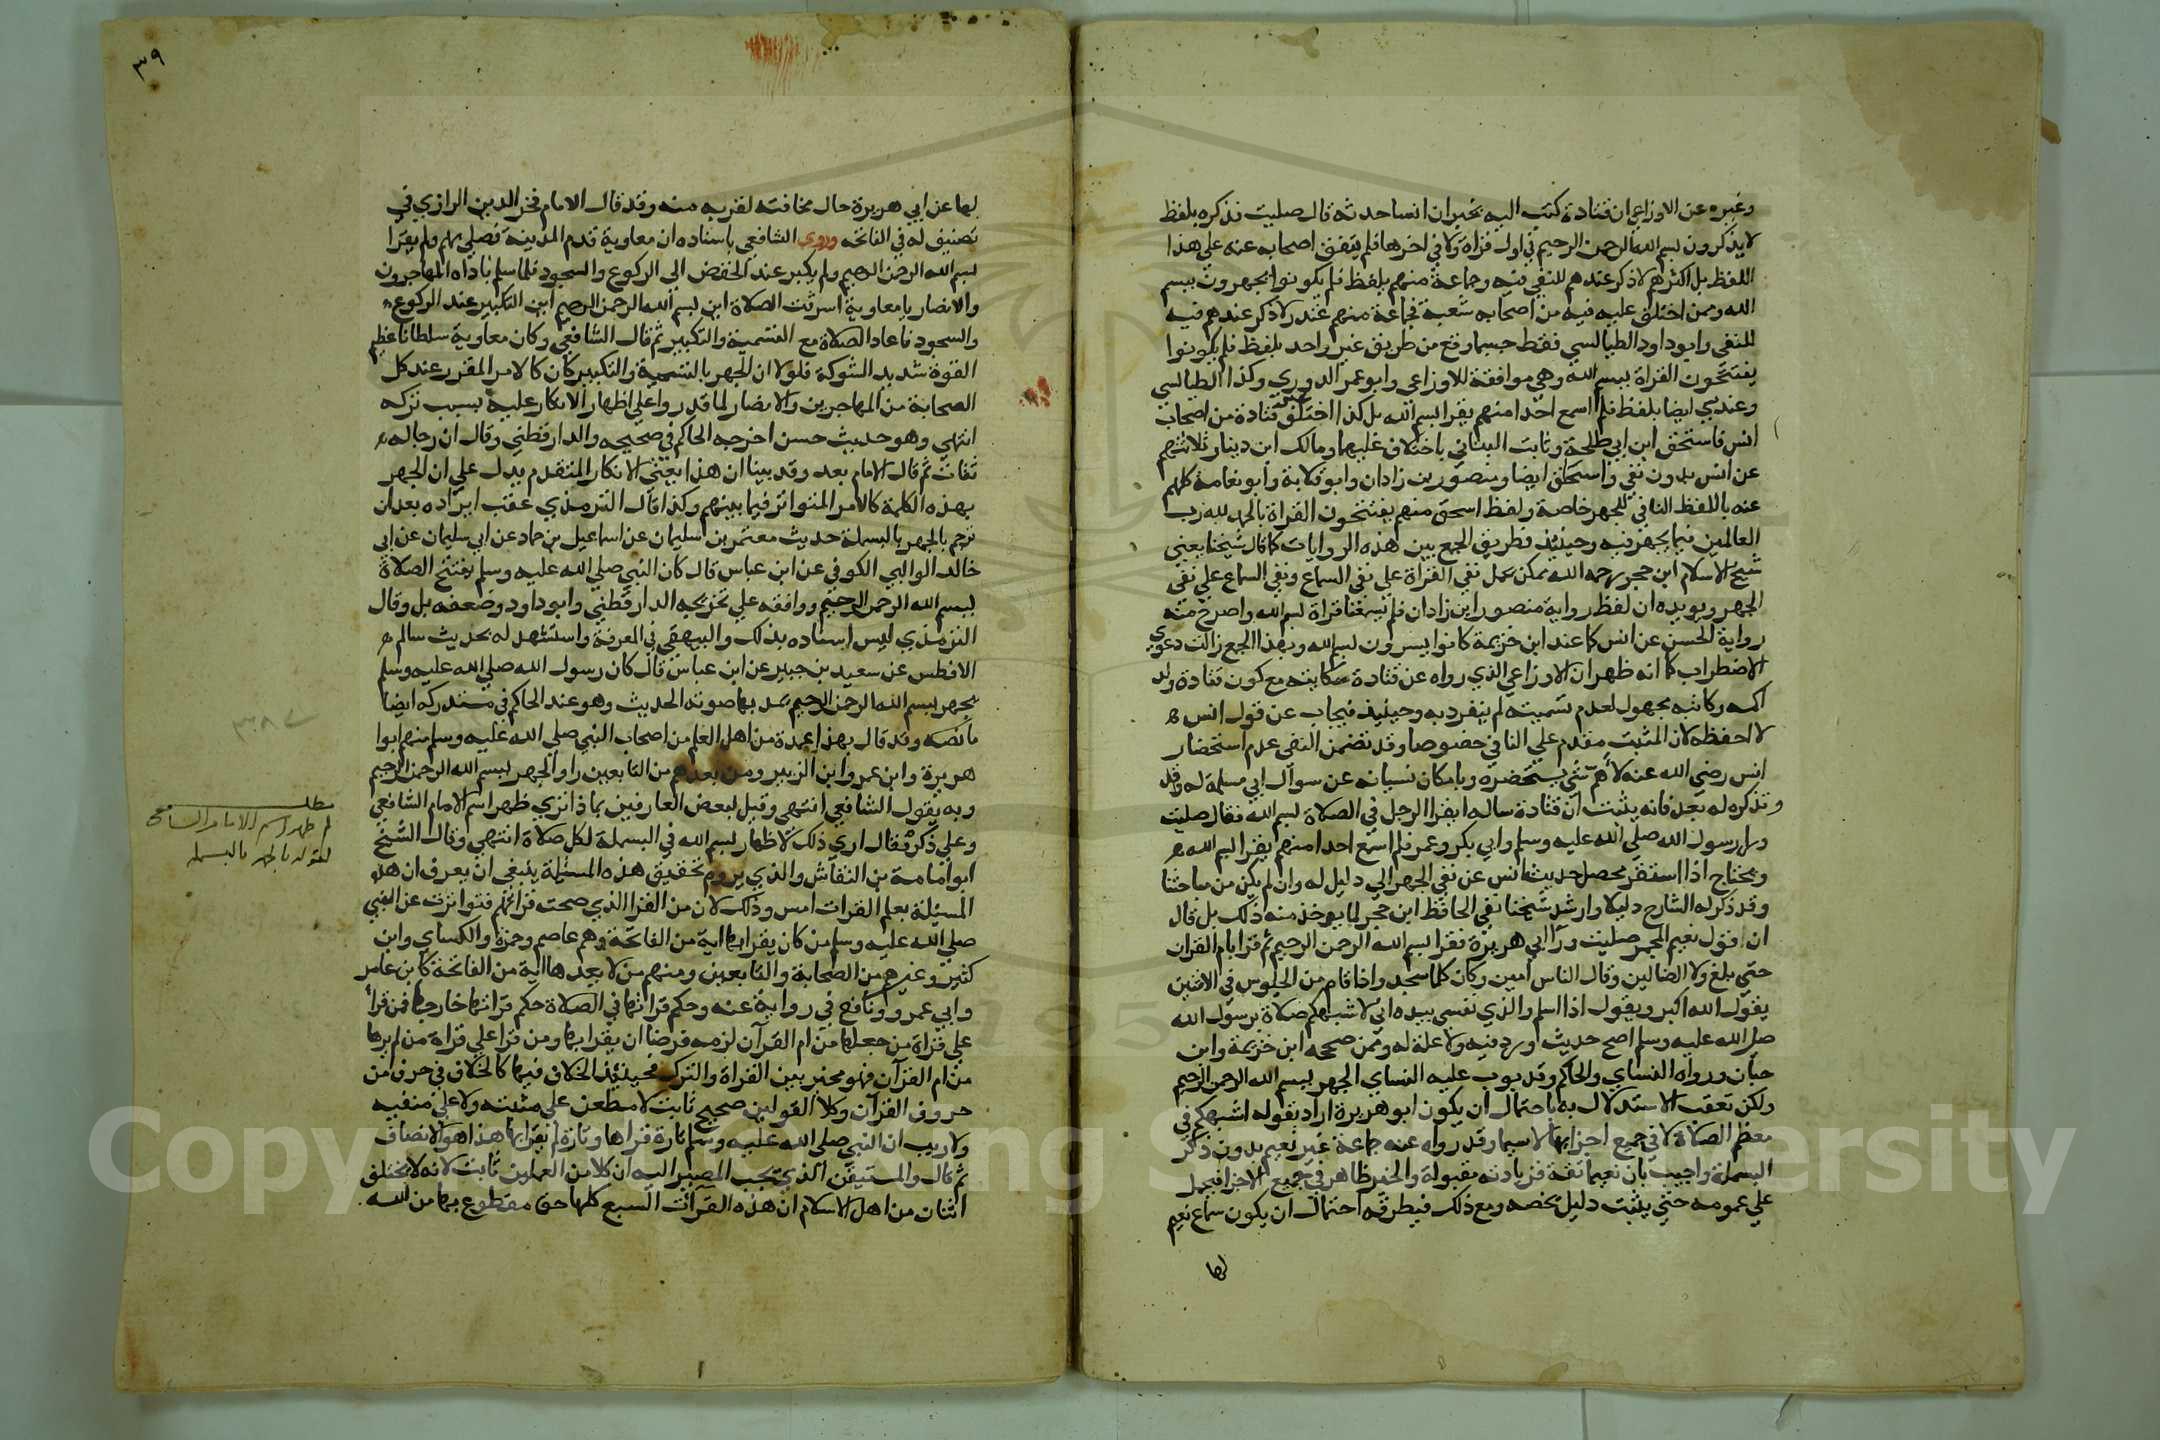 وغيره عن الاوزاعي ان قتادة كتب اليه يخبره ان انسا حدثه قال صليت فذكره بلفظ
لا يذكرون بسم الله الرحمن الرحيم في اول قراة ولا في اخرها فلم يتفق اصحابه عنه علي هذا
اللفظ بل اكثرهم لا ذكر عندهم للنفي فيه وجماعة منهم بلفظ فلم يكونوا يجهرون ببسم
الله وممن اختلف عليه فيه من اصحابه شعبة فجماعة منهم غندر لا ذكر عندهم فيه
للنفي وابو داود الطيالسي فقط حسبما وقع من طريق غير واحد بلفظ فلم يكونوا
يفتتحون القراة ببسم الله وهي موافقة للاوزاعي وابو عمر الدوري وكذا الطيالسي
وعندي ايضا بلفظ فلم اسمع احدا منهم يقرا بسم الله بل كذا اختلف غير قتادة من اصحاب
انس فاسحق ابن ابي طلحة وثابت البناني باختلاف عليهما ومالك ابن دينار ثلاثتهم
عن انس بدون نفي واسحاق ايضا ومنصور بن زادان وابو قلابة وابو نعامة كلهم
عنه باللفظ النافي للجهر خاصة ولفظ اسحق منهم يفتتحون القراة بالحمد لله رب
العالمين فيما يجهر فيه وحينئذ فطريق الجمع بين هذه الروايات كما قال شيخنا يعني
شيخ الاسلام ابن حجر رحمه الله يمكن بحمل نفي القراة علي نفي السماع ونفي السماع علي نفي
الجهر ويويده ان لفظ رواية منصور ابن زادان فلم يسمعنا قراة بسم الله واصرح منه
رواية الحسن عن انس كما عند ابن خزيمة كانوا يسرون بسم الله وبهذا الجمع زالت دعوي
الاضطراب كما انه ظهر ان الاوزاعي الذي رواه عن قتادة مكاتبه مع كون قتادة ولد
اكمه وكاتبه مجهول لعدم تسميته لم ينفرد به وحينئذ فيجاب عن قول انس
لا احفظه لان المثبت مقدم علي النافي خصوصا وقد تضمن النفي عدم استحضار
انس رضي الله عنه لاهم شي يستحضره وبامكان نسيانه عن سوال ابي مسلمة له وقد
وتذكره له بعد فانه يثبت ان قتادة ساله ايقرا الرجل في الصلاة بسم الله فقال صليت
ورا رسول الله صلي الله عليه وسلم وابي بكر وعمر فلم اسمع احدا منهم يقرا بسم الله
ويحتاج اذا استقر محصل حديث انس عن نفي الجهر الي دليل له وان لم يكن من مباحثنا
وقد ذكر له الشارح دليلا وارشد شيخنا بقي الحافظ ابن حجر لما يوخذ منه ذلك بل قال
ان قول نعيم المجمر صليت ورا ابي هريرة فقرا بسم الله الرحمن الرحيم ثم قرا بام القران
حتي بلغ ولا الضالين وقال الناس امين وكان كلما سجد واذا قام من الجلوس في الاثنين
يقول الله اكبر ويقول اذا سلم والذي نفسي بيده اني لاشبهكم صلاة برسول الله
صلي الله عليه وسلم اصح حديث ورد فيه ولا علة له وممن صححه ابن خزيمة وابن
حبان ورواه النساي والحاكم وقد بوب عليه النساي الجهر ببسم الله الرحمن الرحيم
ولكن تعقب الاستدلال به باحتمال ان يكون ابو هريرة اراد بقوله اشبهكم في
معظم الصلاة لا في جميع اجزايها لا سيما وقد رواه عنه جماعة غير نعيم بدون ذكر
البسملة واجيب بان نعيما ثقة فزيادته مقبولة والخبر ظاهر في جميع الاجزا فيحمل
علي عمومه حتي يثبت دليل يخصه ومع ذلك فيطرقه احتمال ان يكون سماع نعيم
لها
٣٩
لها عن ابي هريرة حال مخافته لقربه منه وقد قال الامام فخر الدين الرازي في
تصنيف له في الفاتحه وروي الشافعي باسناده ان معاوية قدم المدينة فصلي بهم ولم يقرا
بسم الله الرحمن الرحيم ولم يكبر عند الخفض الي الركوع والسجود فلما سلم ناداه المهاجرون
والانصار يا معاوية اسرقت الصلاة اين بسم الله الرحمن الرحيم اين التكبير عند الركوع
والسجود فاعاد الصلاة مع التسمية والتكبير ثم قال الشافعي وكان معاوية سلطانا عظيم
القوة شديد الشوكة فلولا ان الجهر بالتسمية والتكبير كان كالامر المقرر عند كل
الصحابة من المهاجرين والانصار لما قدروا علي اظهار الانكار عليه بسبب تركه
انتهي وهو حديث حسن اخرجه الحاكم في صحيحه والدارقطني وقال ان رجاله
ثقات ثم قال الامام بعد وقد بينا ان هذا يعني الانكار المتقدم يدل علي ان الجهر
بهذه الكلمة كالامر المتواتر فيما بينهم وكذا قال الترمذي عقب ايراده بعد ان
ترجم بالجهر بالبسملة حديث معتمر بن سليمان عن اسماعيل بن حماد عن ابي سليمان عن ابي
خالد الوالبي الكوفي عن ابن عباس قال كان النبي صلي الله عليه وسلم يفتتح الصلاة
ببسم الله الرحمن الرحيم ووافقه علي تخريجه الدارقطني وابو داود وضعفه بل وقال
الترمذي ليس اسناده بذلك والبيهقي في المعرفة واستشهد له بحديث سالم
الافطس عن سعيد بن جبير عن ابن عباس قال كان رسول الله صلي الله عليه وسلم
يجهر ببسم الله الرحمن الرحيم يمد بها صوته الحديث وهو عند الحاكم في مستدركه ايضا
ما نصه وقد قال بهذا عدة من اهل العلم من اصحاب النبي صلي الله عليه وسلم منهم ابوا
هريرة وابن عمر وابن الزبير ومن بعدهم من التابعين راوا الجهر ببسم الله الرحمن الرحيم
وبه يقول الشافعي انتهي وقيل لبعض العارفين بما ذا تري ظهر اسم الامام الشافعي
وعلي ذكره فقال اري ذلك لاظهار بسم الله في البسملة لكل صلاة انتهي وقال الشيخ
ابو امامة بن النقاش والذي يروم تحقيق هذه المسئلة ينبغي ان يعرف ان هذه
المسئلة بعلم القرات امس وذلك لان من القرا الذي صحت قراتهم وتواترت عن النبي
صلي الله عليه وسلم من كان يقرا بها اية من الفاتحة وهم عاصم وحمزة والكساي وابن
كثير وغيرهم من الصحابة والتابعين ومنهم من لا يعدها اية من الفاتحة كابن عامر
وابي عمرو ونافع في رواية عنه وحكم قراتها في الصلاة حكم قراتها خارجها فمن قرا
علي قراة من جعلها من ام القرآن لزمه فرضا ان يقرا بها ومن قرا علي قراة من لم يرها
من ام القرآن فهو مخير بين القراة والترك فحينئذ الخلاف فيها كالخلاف في حرف من
حروف القرآن وكلا القولين صحيح ثابت لا مطعن علي مثبته ولا علي منفيه
ولا ريب ان النبي صلي الله عليه وسلم تارة قراها وتارة لم يقرا بها هذا هو الانصاف
ثم قال والمستيقن الذي يجب المصير اليه ان كلا من العملين ثابت لانه لا يختلف
اثنان من اهل الاسلام ان هذه القرآت السبع كلها حق مقطوع بها من الله
مطلب
لم ظهر اسم الامام الشافعي
لقوله بالجهر بالبسملة